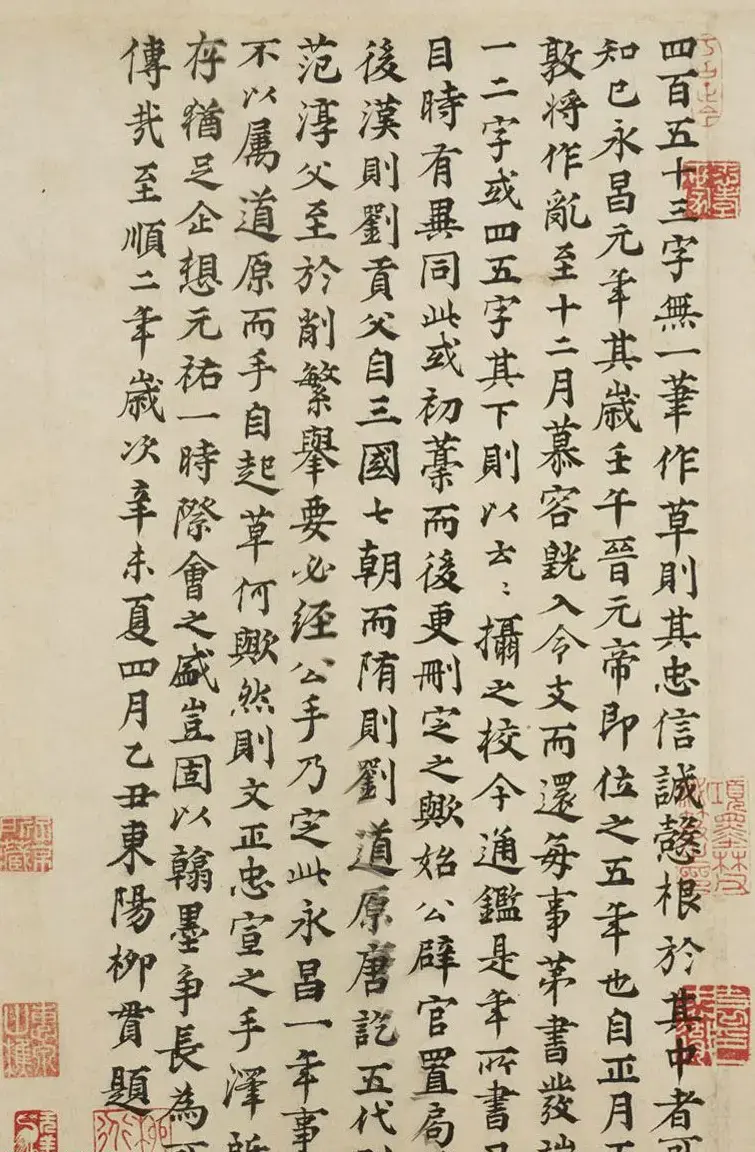 四百五十三字無一筆作草則其忠信誠愨根於其中者可
知已永昌元年其歲壬午晉元帝即位之五年也自正月王
敦將作亂至十二月慕容皝入令支而還每事第書發端
一二字或四五字其下則以云〻攝之校今通鑑是年所書
目時有異同此或初藁而後更刪定之歟始公辟官置局
後漢則劉貢父自三國七朝而隋則劉道原唐訖五代則
范淳父至於削繁舉要必經公手乃定此永昌一年事
不以屬道原而手自起草何歟然則文正忠宣之手澤所
存猶足企想元祐一時際會之盛豈固以翰墨爭長為可
傳哉至順二年歲次辛未夏四月乙丑東陽柳貫題